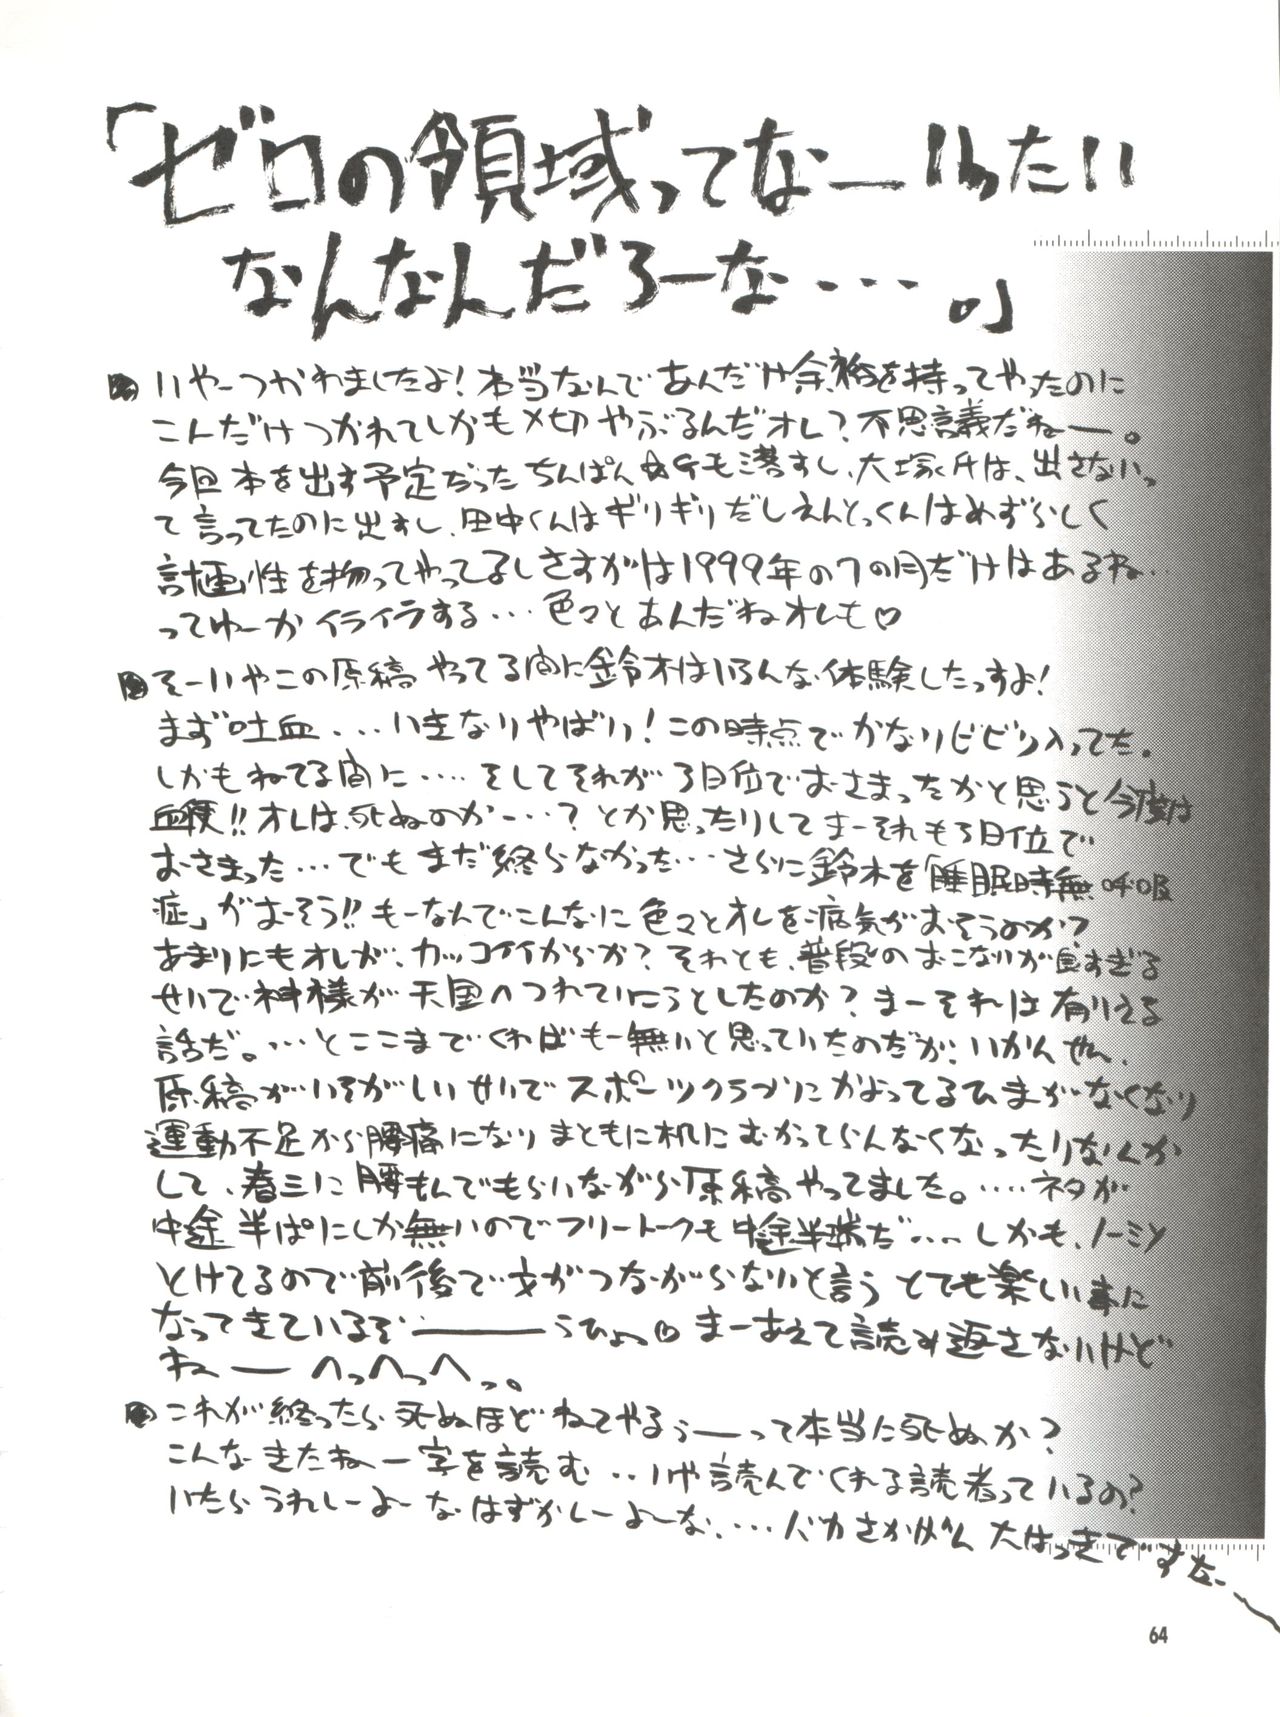 「ゼロの領域ってなーいったい
なんなんだろーな・・・。」
いやーつかれましたよ!本当なんであんだけ余裕を持ってやったのに
こんだけつかれてしかも〆切やぶるんだオレ?不思議だねー。
今回本を出す予定だったちんぱん☆Gも落すし、大塚氏は、出さないっ
て言ってたのに出すし、田中くんはギリギリだしえんどっくんはめずらしく
計画性を持ってやってるしさすがは1999年の7の月だけはあるね‥
ってゆーかイライラする・・・色々とあんだねオレも♡
そーいやこの原稿やってる間に鈴木はいろんな体験したっすよ!
まず吐血・・・いきなりやばいっ!この時点でかなりビビリ入ってた。
しかもねてる間に・・・・そしてそれが3日位でおさまったかと思うと今度は
血便!!オレは、死ぬのか・・・?とか思ったりしてまーそれも3日位で
おさまった・・・でもまだ終らなかった・・・さらに鈴木を「睡眠時無呼吸
症」がおそう!!もーなんでこんなに色々とオレを病気がおそうのか?
あまりにもオレが、カッコイイからか?それとも、普段のおこないが良すぎる
せいで神様が天国へつれていこうとしたのか?まーそれは有りえる
話だ。・・・とここまでくればもー無いと思っていたのだが、いかんせん、
原稿がいそがしいせいでスポーツクラブにかよってるひまがなくなり
運動不足から腰痛になりまともに机にむかってらんなくなったりなんか
して、春三に腰もんでもらいながら原稿やってました。・・・・ネタが
中途半ぱにしか無いのでフリートークも中途半端だ・・・しかも、ノーミソ
とけてるので前後で文がつながらないと言うとても楽しい事に
なってきているぞーーーうひょっ♡まーあえて読み返さないけど
ねーーへっへっへっ。
これが終ったら死ぬほどねてやるぅーって本当に死ぬか?
こんなきたねー字を読む‥いや読んでくれる読者っているの?
いたらうれしーよーなはずかしーよーな、・・・バカさかげん大はっきですなー
64